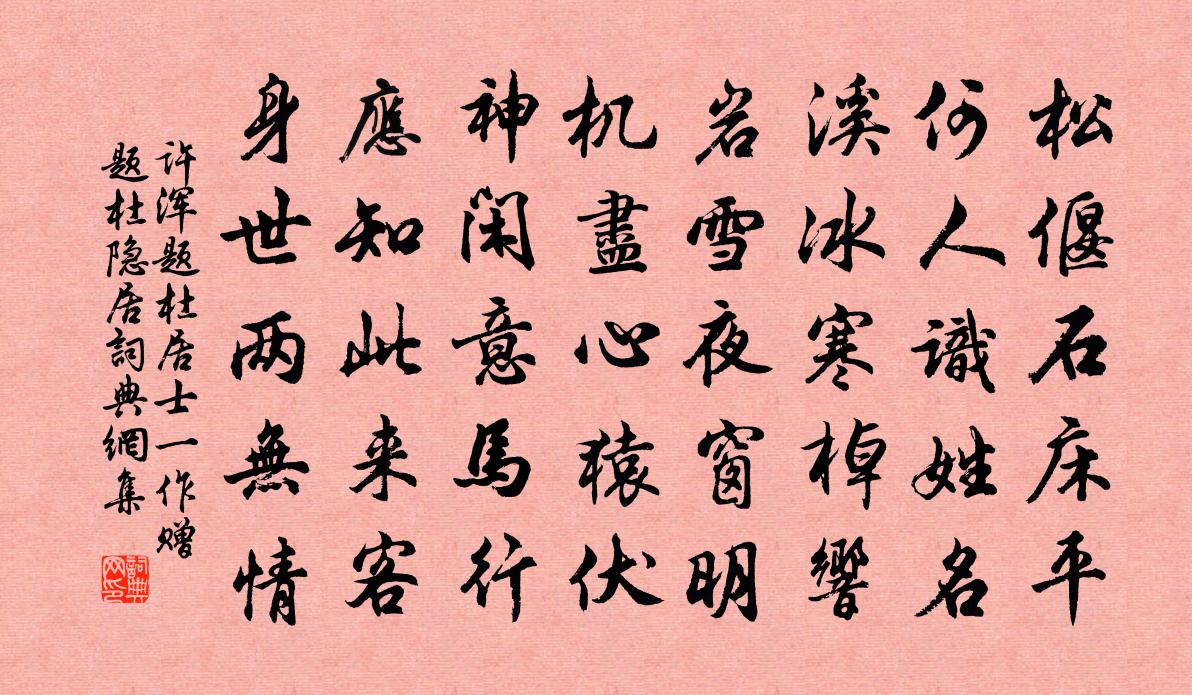 松偃石床平
何人識姓名
溪冰寒棹響
岩雪夜窗明
机盡心猿伏
神閑意馬行
應知此来客
身世两無情
许浑题杜居士一作赠
题杜隐居詞典網集
詞典网印